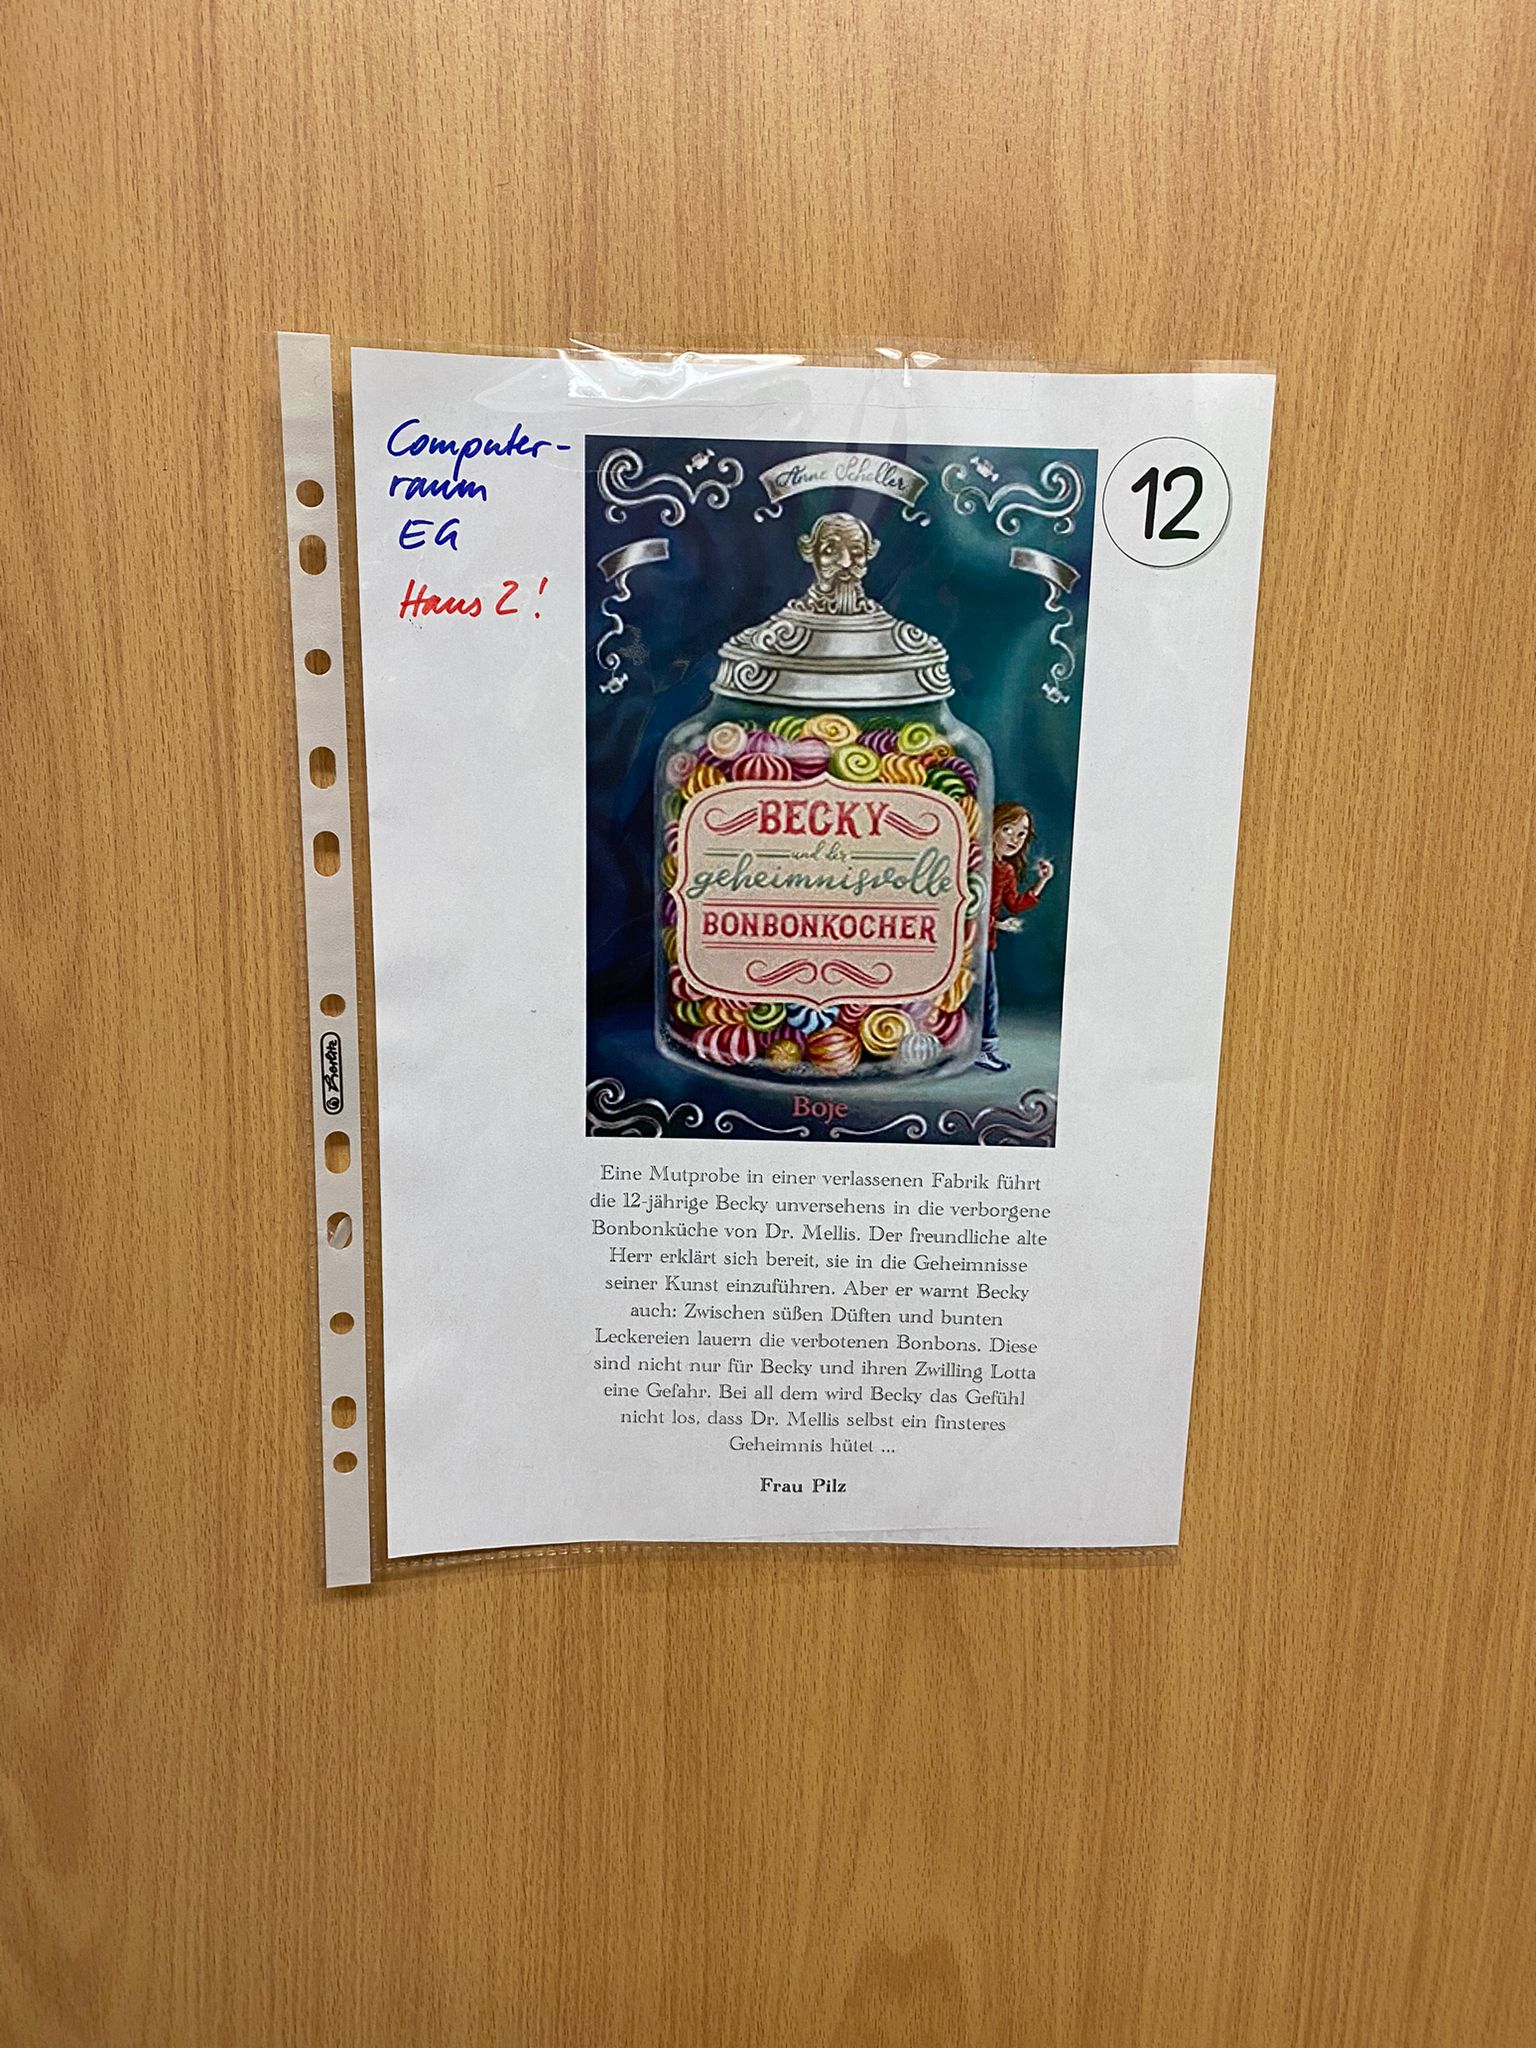 Computer-
raum
EG
Haus 2!
12
Anne Scheller
BECKY
und der
geheimnisvolle
BONBONKOCHER
Boje
Herlitz
Eine Mutprobe in einer verlassenen Fabrik führt
die 12-jährige Becky unversehens in die verborgene
Bonbonküche von Dr. Mellis. Der freundliche alte
Herr erklärt sich bereit, sie in die Geheimnisse
seiner Kunst einzuführen. Aber er warnt Becky
auch: Zwischen süßen Düften und bunten
Leckereien lauern die verbotenen Bonbons. Diese
sind nicht nur für Becky und ihren Zwilling Lotta
eine Gefahr. Bei all dem wird Becky das Gefühl
nicht los, dass Dr. Mellis selbst ein finsteres
Geheimnis hütet ...
Frau Pilz